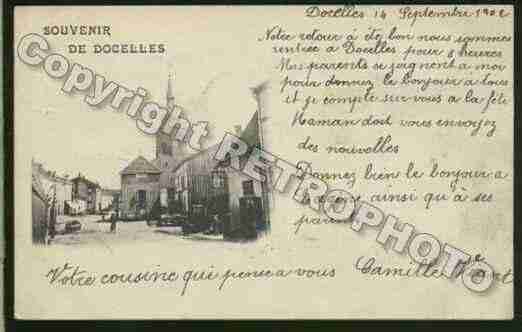 Docelles 14 Septembre 1902
SOUVENIR
DE DOCELLES
Notre retour a été bon nous sommes
rentrée a Docelles pour 8 heures
Mes parents se joignent a moi
pour donnez le bonjour a tous
et je compte sur vous a la fête
Maman doit vous envoyez
des nouvelles
Donnez bien le bonjour a
ainsi qu'à ses
parents
Votre cousine qui pense a vous Camille
Copyright RETROPHOTO